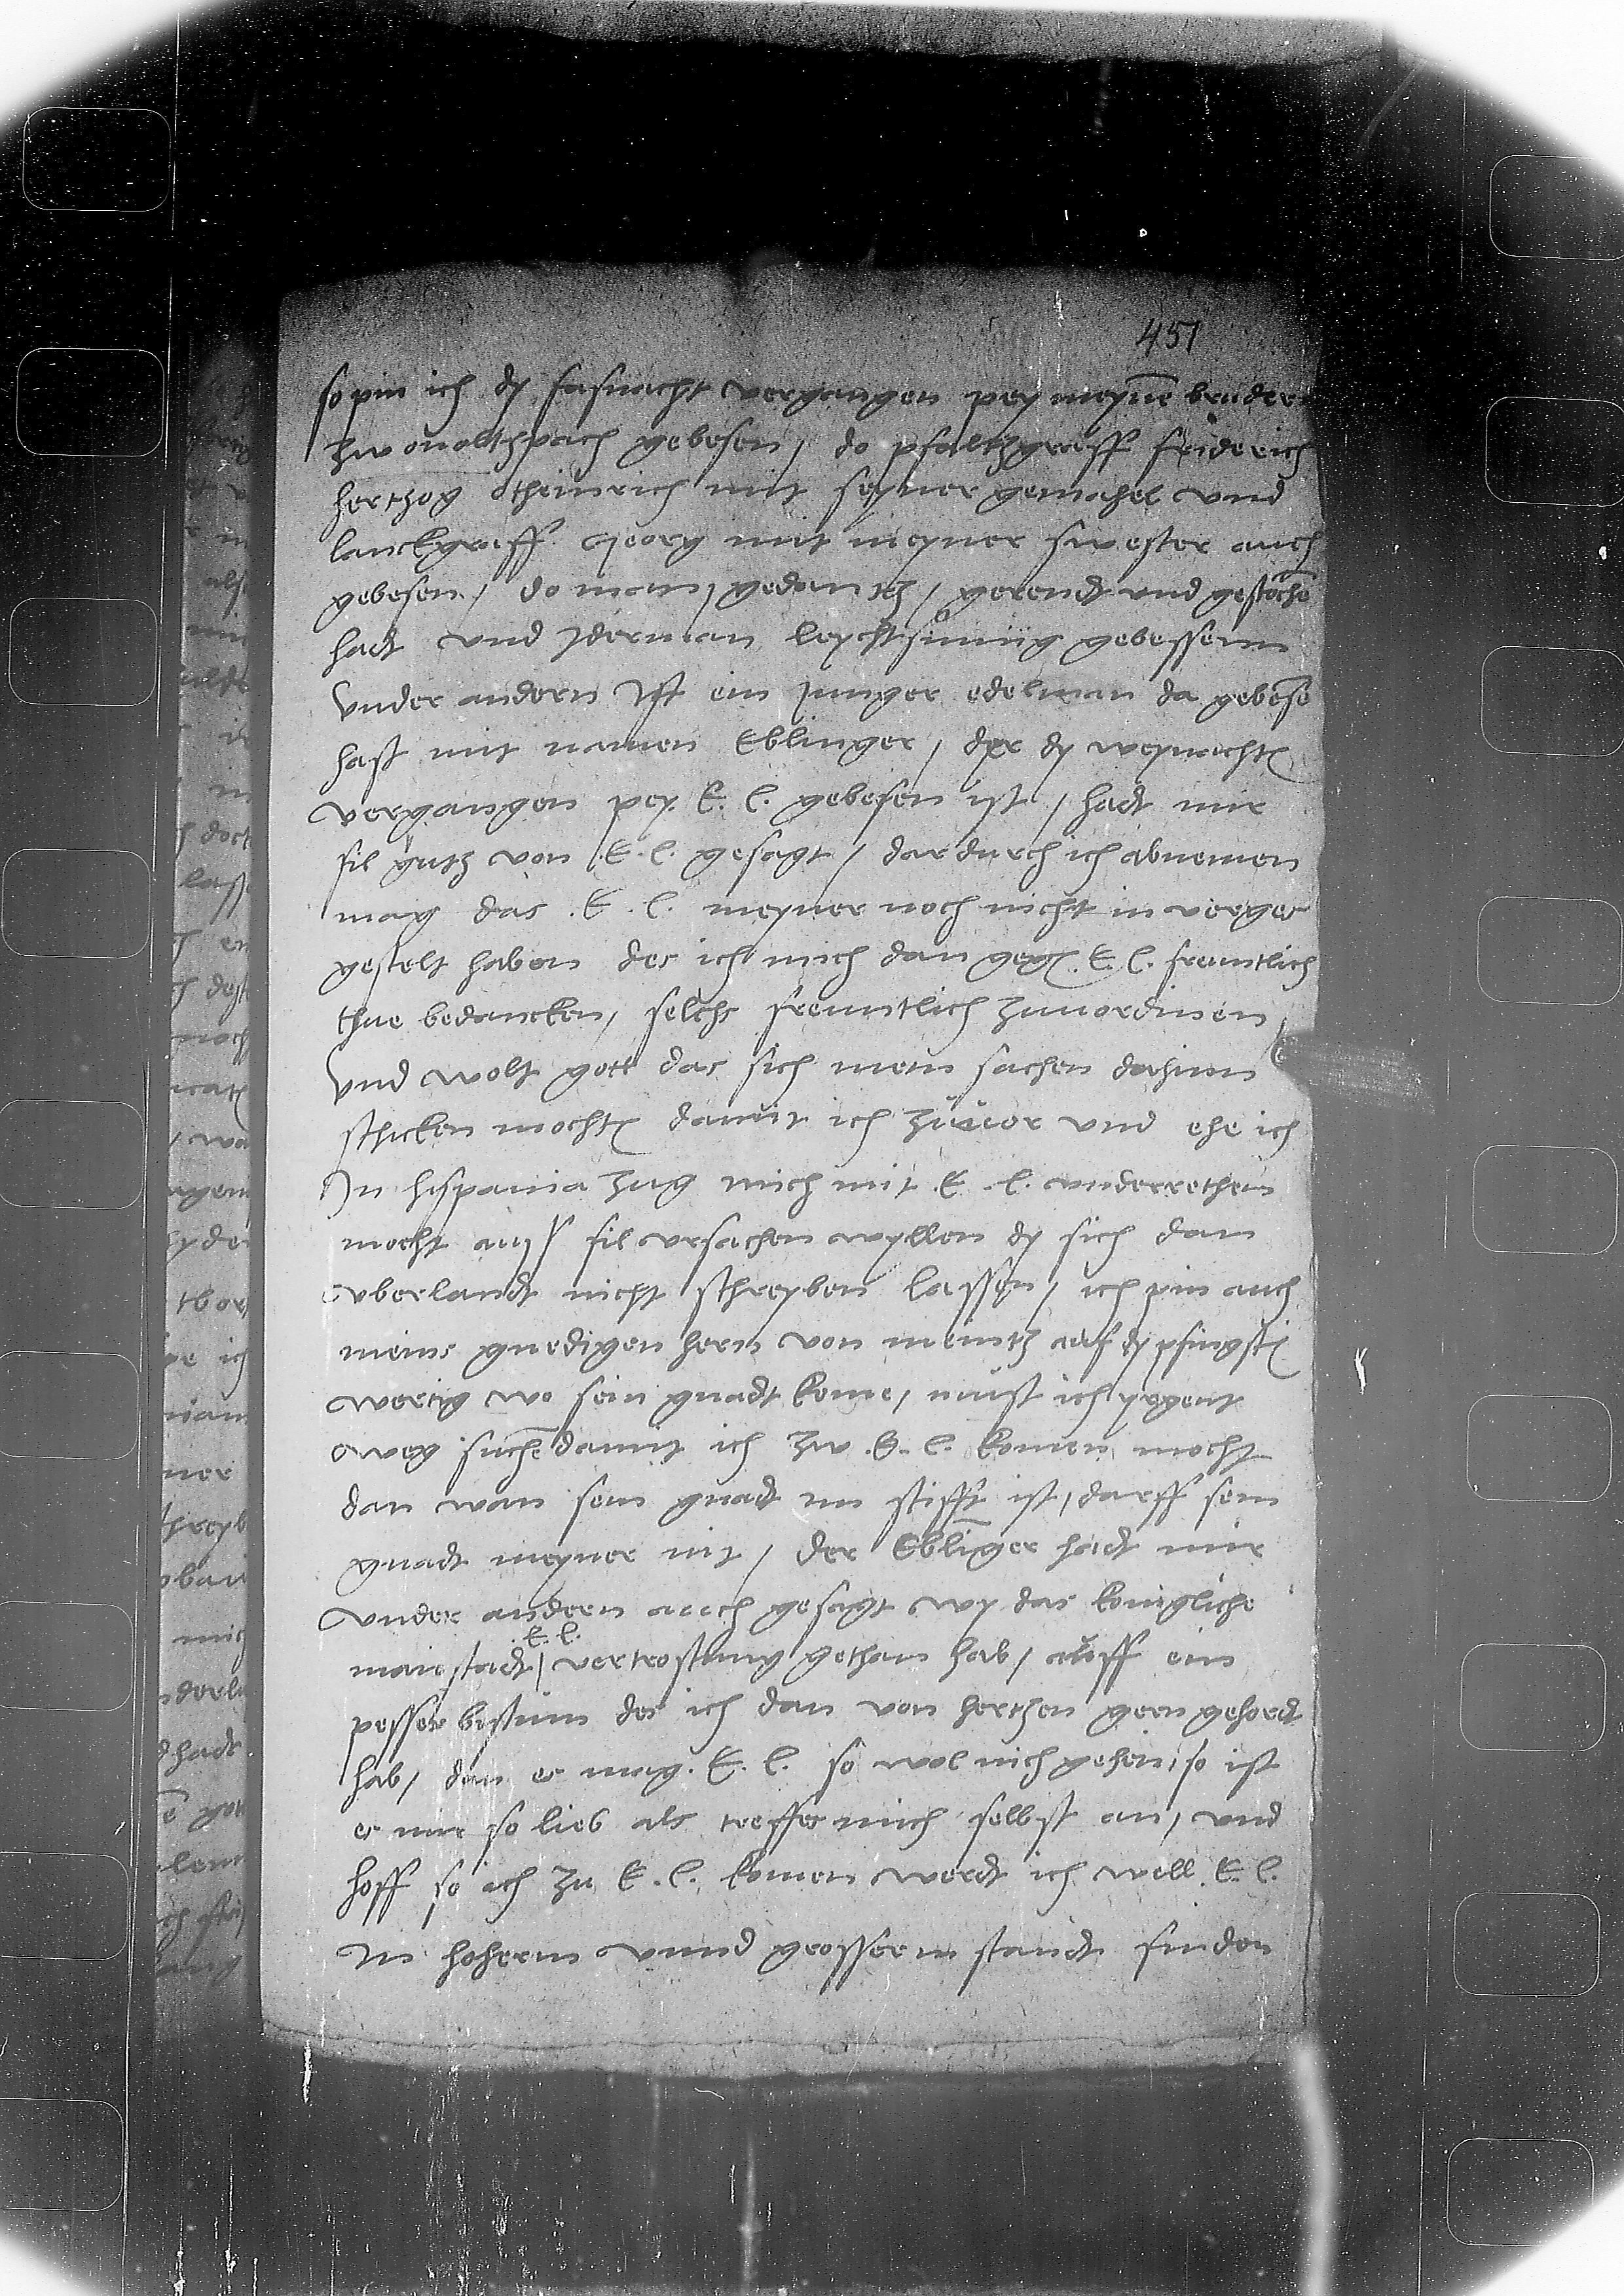 451
so pin ich dy fasnacht vergangen pey meynē bruder
zw onolthpach gebesen / do pfaltzgraff friderich
hertzog otheinrich mit seyner gemahel vnd
lanckgraff Georg mit meyner swester auch
gebesen / do man gedantz / gerendt vnd gestochē
hadt vnd Iderman leychtsinnig gebessenn
Vnder andern Ist ein junger edelman da gebesē
hast mit namen Eblinger / der dy weynachtē
vergangen pey E. l. gebesen ist / hadt mir
fil gutz von E. l. gesagt / dar durch ich abnemen
mag das E. l. meyner noch nicht in verges
gestelt haben des ich mich dan gegē E. l. freuntlich
thue bedancken / selchs freuntlich zuuordinen
Vnd wolt gott das sich mein sachen dohinn
schicken mochtē damit ich zuuor vnd ehe ich
In hispania zug mich mit E. l. vnderrethen
mocht auss fil vrsachen wyllen dy sich dan
vberlandt nicht schreyben lassen / ich pin auch
meins gnedigen hern von meintz auf dy pfingstē
wertig wo sein gnadt kome / must ich yrgent
weg suchē damit ich zw E. l. komen mocht
dan wan sein gnadt im stifft ist / darff sein
gnadt meyner nit / der Eblinger hadt mir
vnder andern auch gesagt wy das konigliche
maiestadt / E. l. vertrostung gethan hab / auff ein
pesser bistum des ich dan von hertzen gern gehordt
hab / dan es mag E. l. so wol nich gehen / so ist
es mir so lieb als treffes mich selbst an / vnd
hoff so ich zu E. l. komen werdt ich well E. l.
In hoherm vnnd grosserm standt finden